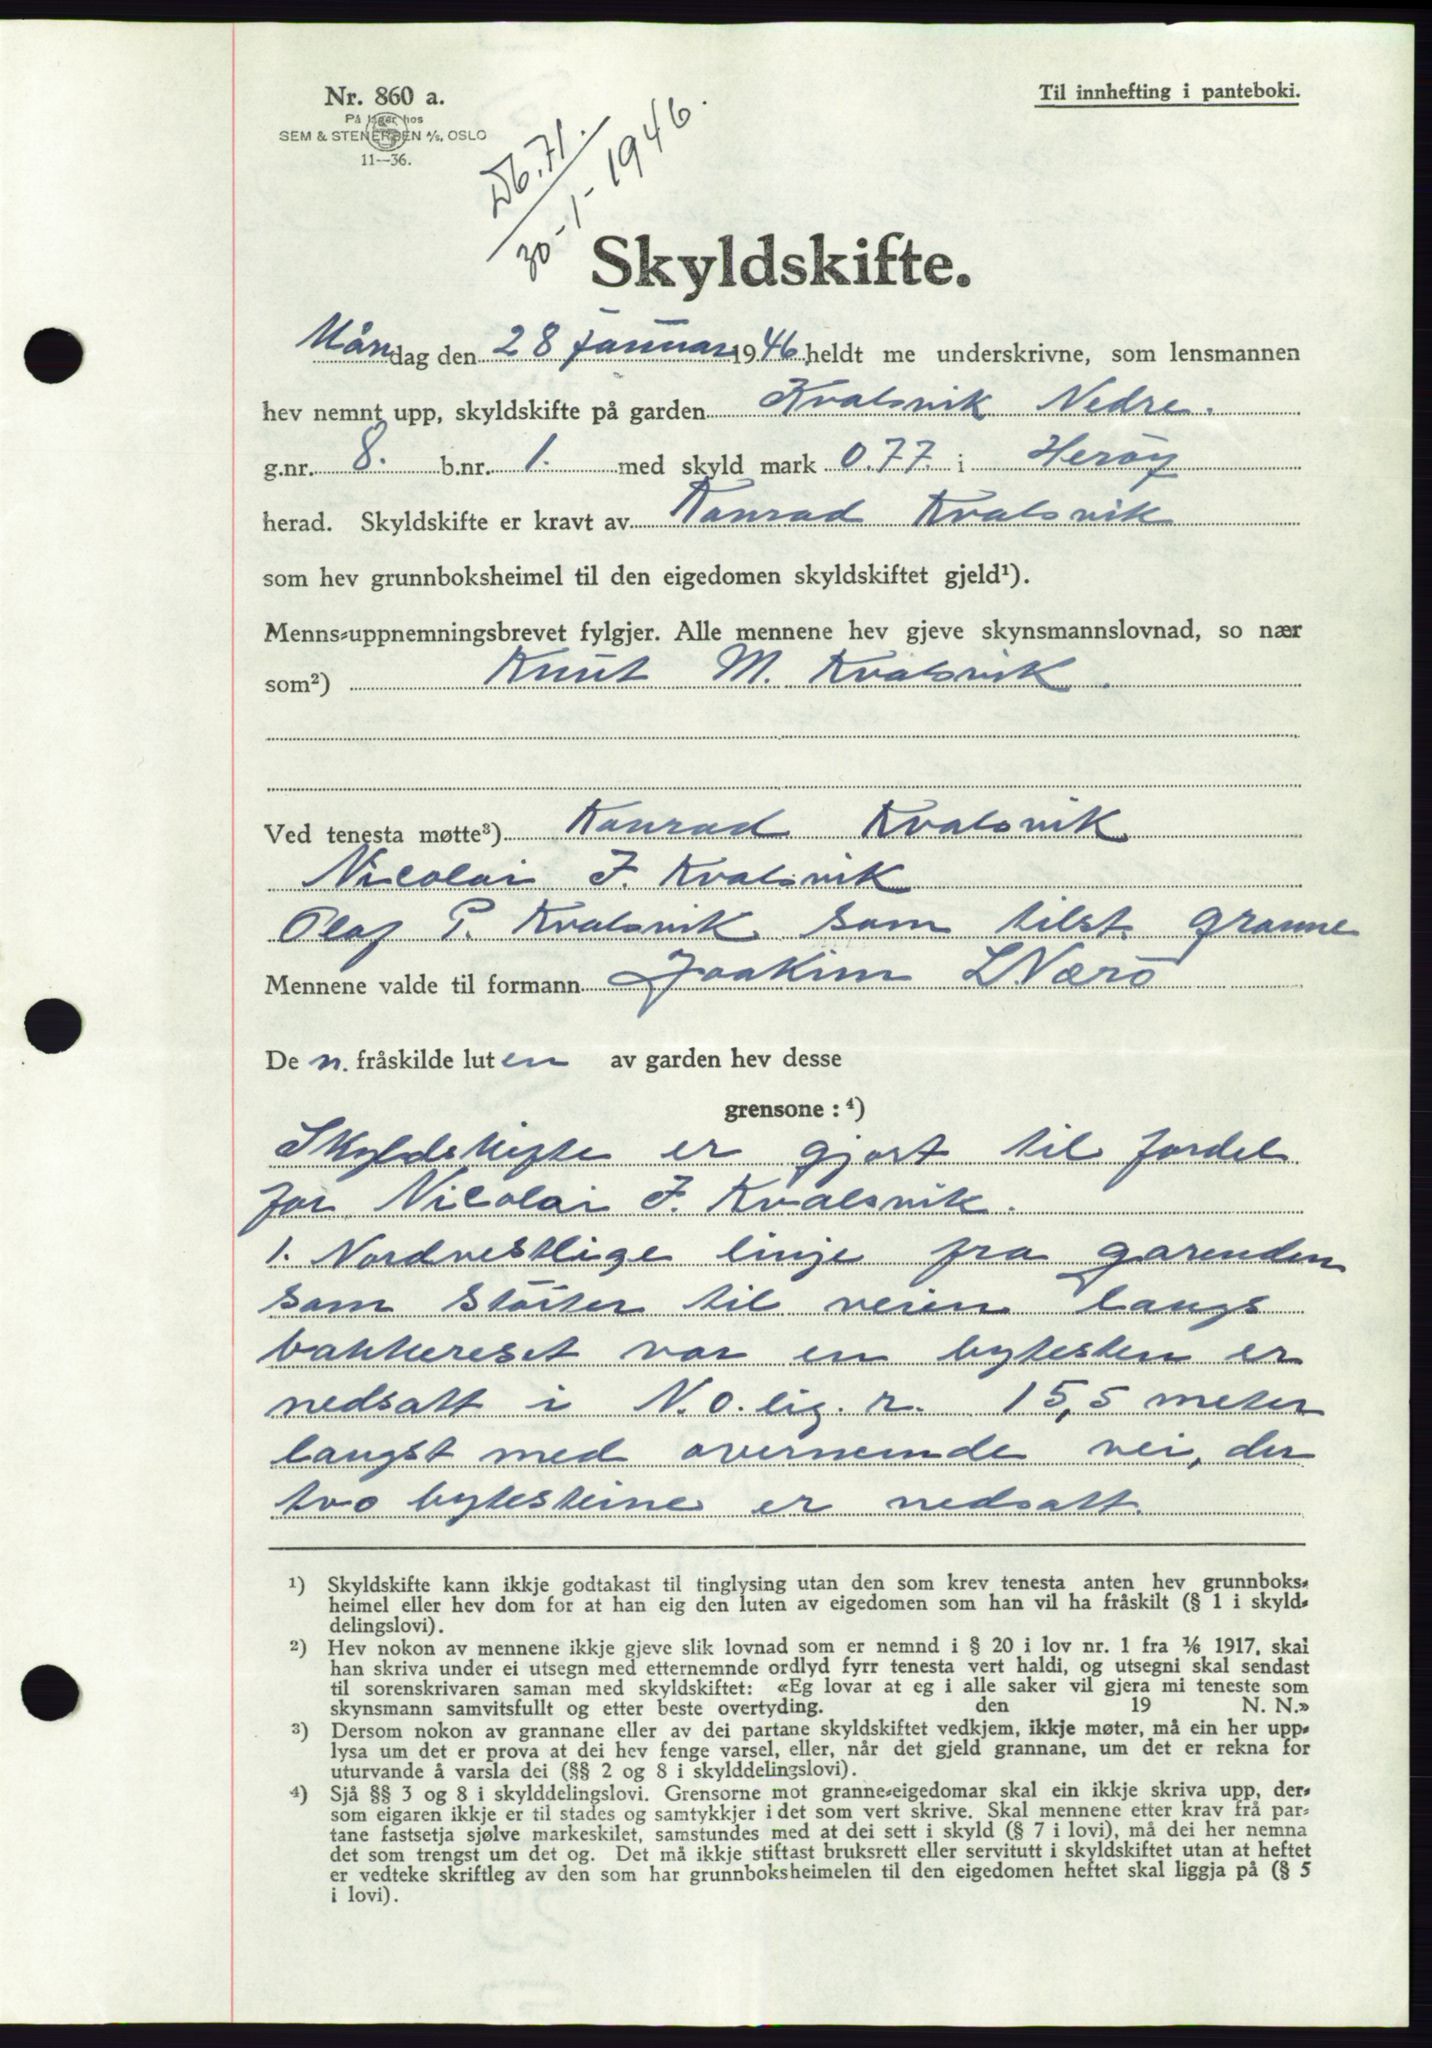 Nr. 860 a.
På lager hos
SEM & STENERSEN A/S, OSLO
11—36.
Til innhefting i panteboki.
Db. 71.
30-1-1946.
Skyldskifte.
Måndag den 28 januar 1946, heldt me underskrivne, som lensmannen
hev nemnt upp, skyldskifte på garden Kvalsvik Nedre.
g.nr. 8. b.nr. 1. med skyld mark 0.77. i Herøy
herad. Skyldskifte er kravt av Konrad Kvalsvik
som hev grunnboksheimel til den eigedomen skyldskiftet gjeld¹).
Menns-uppnemningsbrevet fylgjer. Alle mennene hev gjeve skynsmannslovnad, so nær
som²) Knut M. Kvalsvik.
Ved tenesta møtte³) Konrad Kvalsvik
Nicolai J. Kvalsvik
Olaf P. Kvalsvik som tilst. granne
Mennene valde til formann Joakim L. Nærö
De n. fråskilde luten av garden hev desse
grensone : ⁴)
Skyldskifte er gjort til fordel
for Nicolai J. Kvalsvik.
1. Nordvestlige linje fra garenden
som stöiter til veien langs
bakkereset var en bytesten er
nedsatt i N.O.lig. r. 15,5 meter
langst med overnemde vei, der
tvo bytesteine er nedsatt.
¹) Skyldskifte kann ikkje godtakast til tinglysing utan den som krev tenesta anten hev grunnboks-
heimel eller hev dom for at han eig den luten av eigedomen som han vil ha fråskilt (§ 1 i skyld-
delingslovi).
²) Hev nokon av mennene ikkje gjeve slik lovnad som er nemnd i § 20 i lov nr. 1 fra 1/6 1917, skal
han skriva under ei utsegn med etternemnde ordlyd fyrr tenesta vert haldi, og utsegni skal sendast
til sorenskrivaren saman med skyldskiftet: «Eg lovar at eg i alle saker vil gjera mi teneste som
skynsmann samvitsfullt og etter beste overtyding. den 19 N. N.»
³) Dersom nokon av grannane eller av dei partane skyldskiftet vedkjem, ikkje møter, må ein her upp-
lysa um det er prova at dei hev fenge varsel, eller, når det gjeld grannane, um det er rekna for
uturvande å varsla dei (§§ 2 og 8 i skylddelingslovi).
⁴) Sjå §§ 3 og 8 i skylddelingslovi. Grensorne mot granne-eigedomar skal ein ikkje skriva upp, der-
som eigaren ikkje er til stades og samtykkjer i det som vert skrive. Skal mennene etter krav frå par-
tane fastsetja sjølve markeskilet, samstundes med at dei sett i skyld (§ 7 i lovi), må dei her nemna
det som trengst um det og. Det må ikkje stiftast bruksrett eller servitutt i skyldskiftet utan at heftet
er vedteke skriftleg av den som har grunnboksheimelen til den eigedomen heftet skal liggja på (§ 5
i lovi).